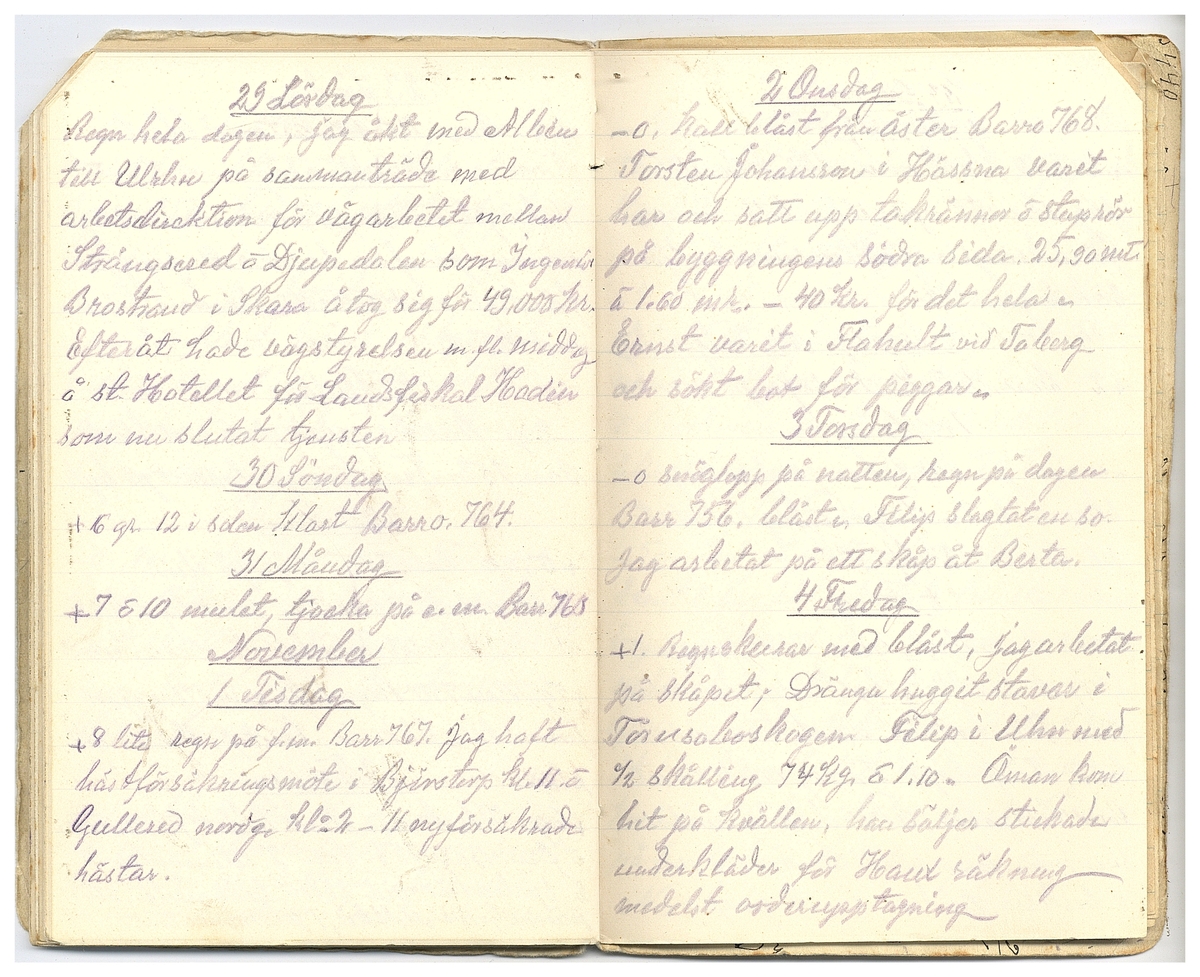 29 Lördag
Regn hela dagen, jag åkt med Albin
till Ulrhn på sammanträde med
arbetsdirektion för vägarbetet mellan
Strängsered å Djupedalen som Ingeniör
Brostrand i Skara åtog sig för 49,000 kr.
Efteråt hade vägstyrelsen m.fl. middag
å st. Hotellet för Landsfiskal Hadin
som nu slutat tjensten
30 Söndag
+6 gr. 12 i solen klart Barro. 764.
31 Måndag
+7 å 10 mulet, tjocka på e.m. Barr 768
November
1 Tisdag
+8 lite regn på f.m. Barr 767. Jag haft
hästförsäkringsmöte i Björstorp kl. 11 å
Gullered nordg. kl 2 – 11 nyförsäkrade
hästar.
2 Onsdag
–0. kall blåst från öster Barro 768.
Torsten Johansson i Hässna varit
har och satt upp takrännor å stuprör
på byggningens södra sida. 25,90 mt.
à 1.60 mt. – 40 kr. för det hela
Ernst varit i Flahult vid Taberg
och sökt bot för piggar
3 Torsdag
–0 snöglopp på natten, regn på dagen
Barr 756. blåst Filip slagtat en so.
Jag arbetat på ett skåp åt Berta.
4 Fredag
+1. Regnskurar med blåst, jag arbetat
på skåpet; Drängn huggit stavar i
Filip i Uhn med
1/2 skålling 74 kg. à 1.10 Öman kom
hit på kvällen, han säljer stickade
underkläder för räkning
medelst orderupptagning